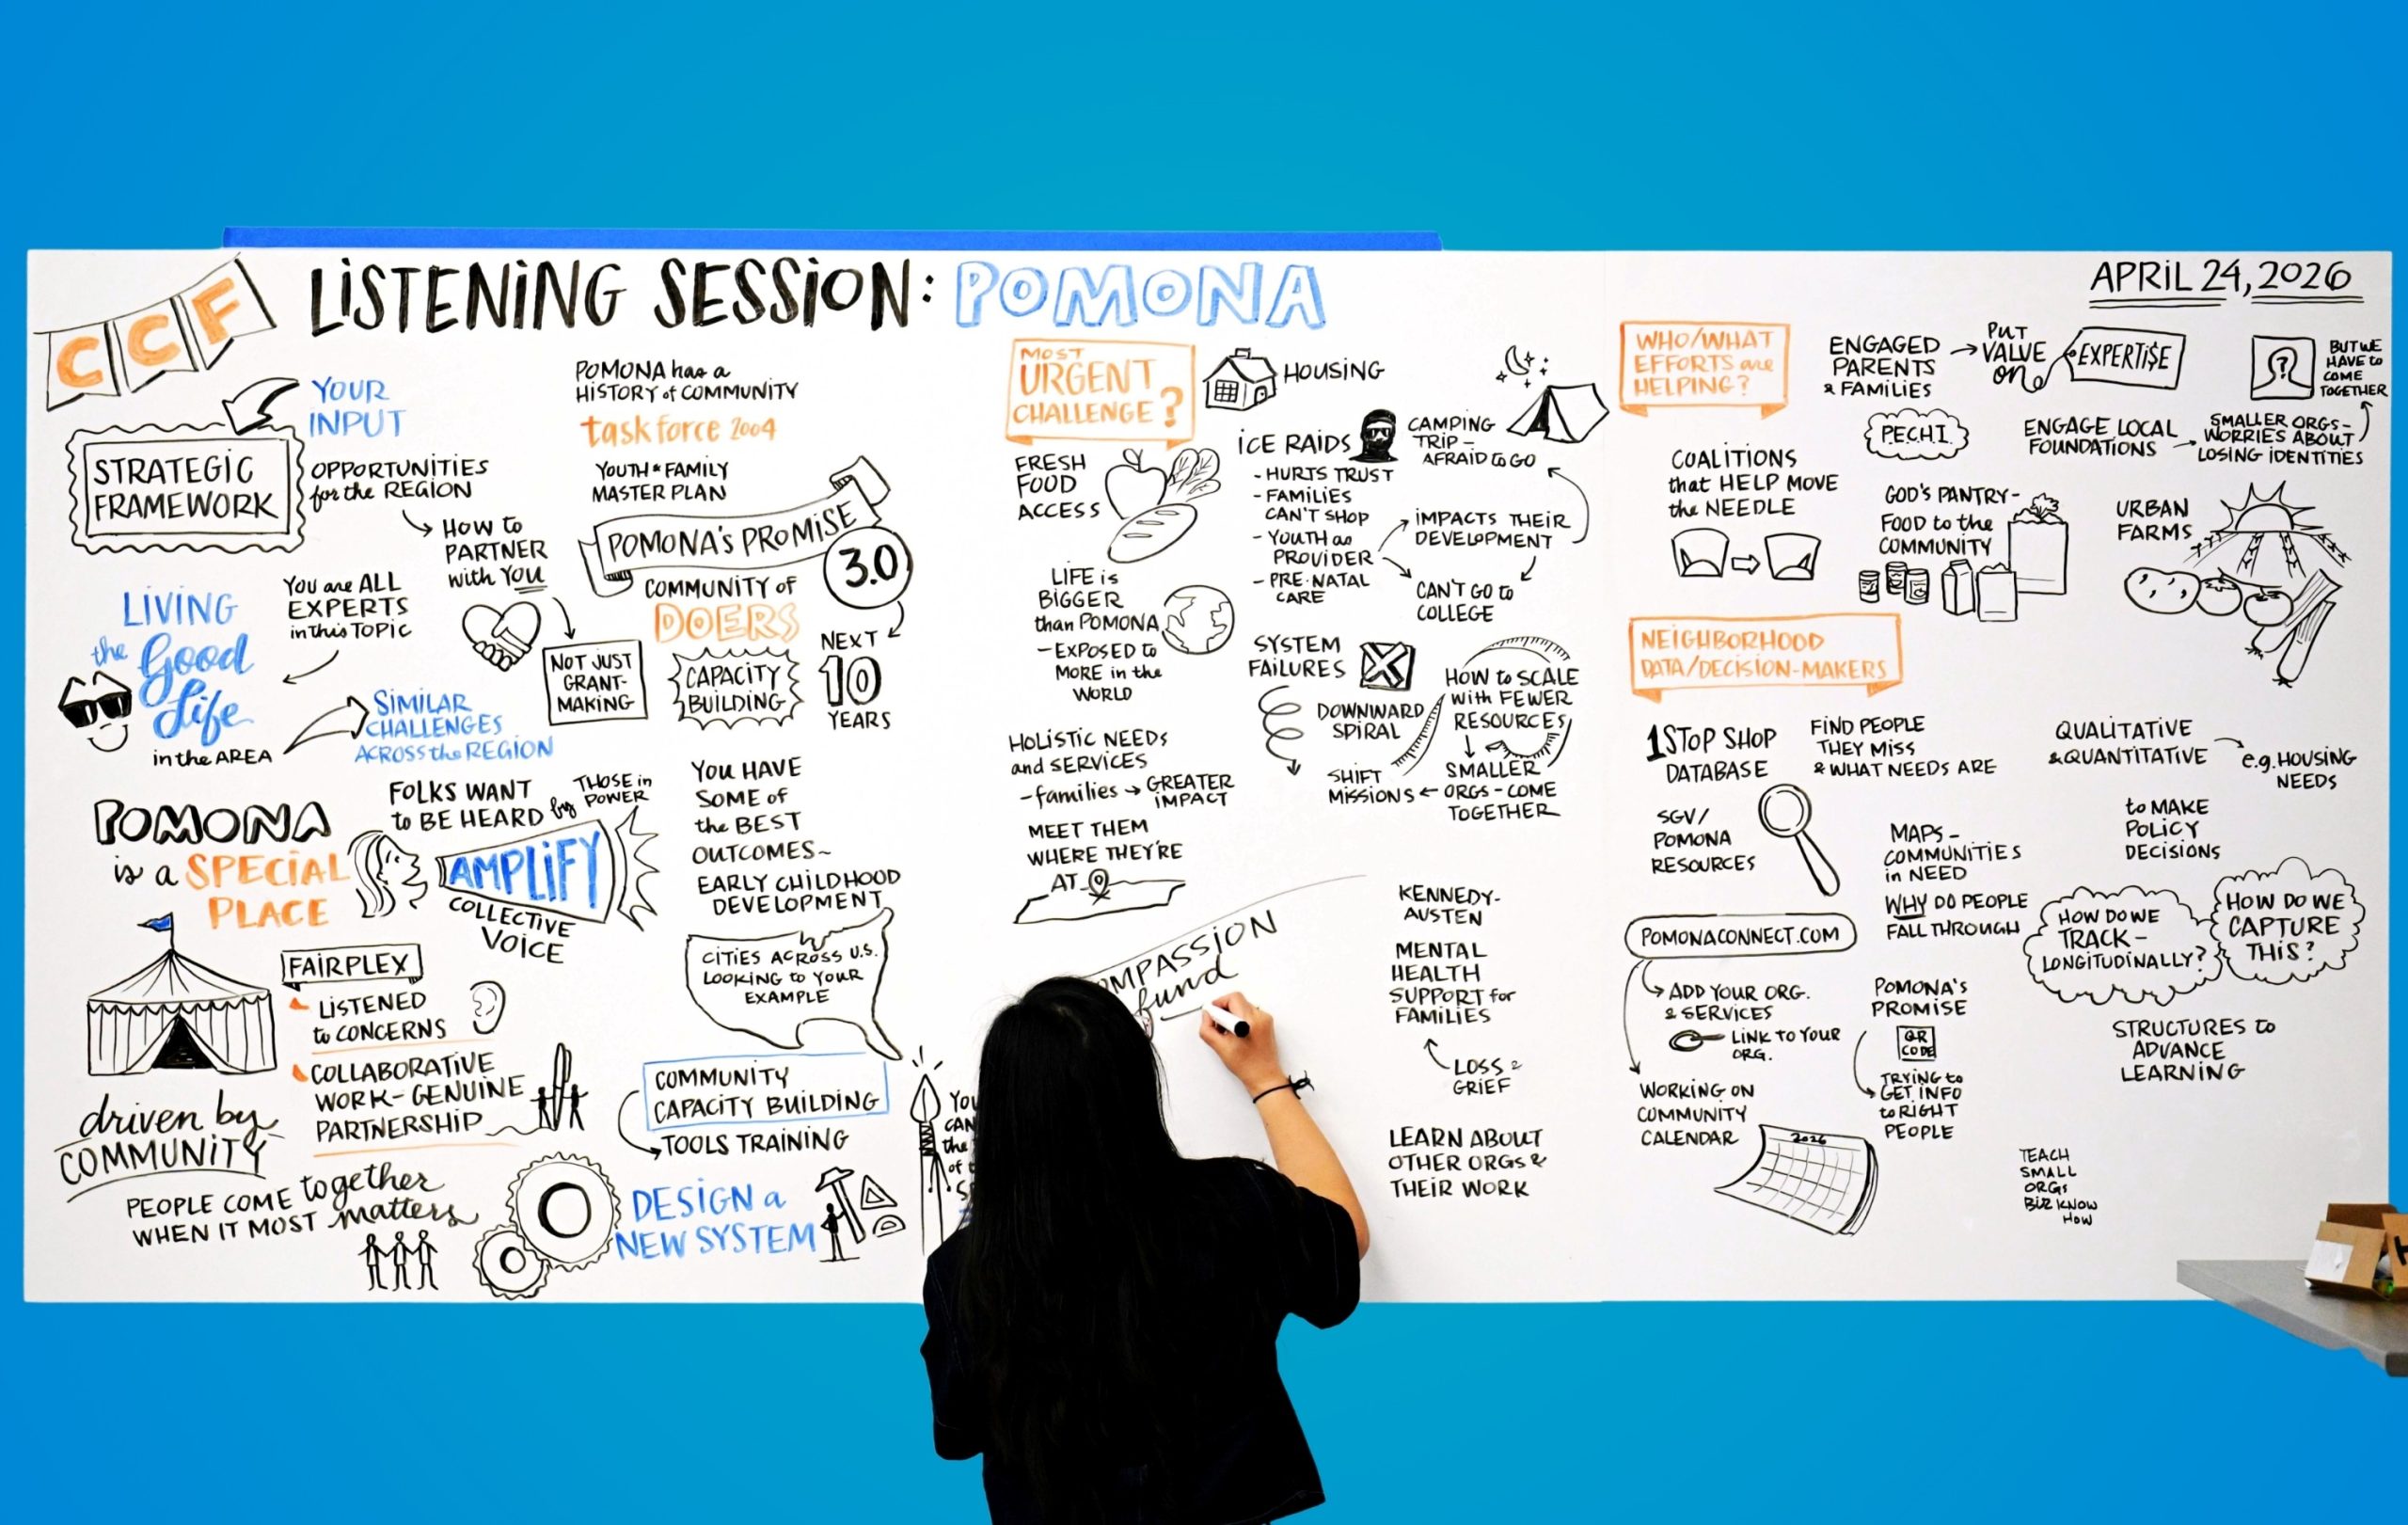 CCF
LISTENING SESSION: POMONA
APRIL 24, 2026
YOUR
INPUT
STRATEGIC
FRAMEWORK
OPPORTUNITIES
for the REGION
HOW to
PARTNER
with YOU
NOT JUST
GRANT-
MAKING
YOU are ALL
EXPERTS
in this TOPIC
LIVING
the Good
Life
in the AREA
SIMILAR
CHALLENGES
ACROSS the REGION
POMONA has a
HISTORY of COMMUNITY
task force 2004
YOUTH & FAMILY
MASTER PLAN
POMONA'S PROMISE
3.0
COMMUNITY of
DOERS
CAPACITY
BUILDING
NEXT
10
YEARS
POMONA
is a SPECIAL
PLACE
FOLKS WANT
to BE HEARD by
THOSE in
POWER
AMPLIFY
COLLECTIVE
VOICE
YOU HAVE
SOME of
the BEST
OUTCOMES~
EARLY CHILDHOOD
DEVELOPMENT
CITIES ACROSS U.S.
LOOKING to YOUR
EXAMPLE
FAIRPLEX
LISTENED
to CONCERNS
COLLABORATIVE
WORK - GENUINE
PARTNERSHIP
driven by
COMMUNITY
PEOPLE COME together
WHEN IT MOST matters
COMMUNITY
CAPACITY BUILDING
TOOLS TRAINING
DESIGN a
NEW SYSTEM
YOU
CAN
the
of
MOST
URGENT
CHALLENGE?
HOUSING
FRESH
FOOD
ACCESS
ICE RAIDS
- HURTS TRUST
- FAMILIES
CAN'T SHOP
- YOUTH as
PROVIDER
- PRE-NATAL
CARE
CAMPING
TRIP -
AFRAID to GO
IMPACTS THEIR
DEVELOPMENT
CAN'T GO to
COLLEGE
LIFE is
BIGGER
than POMONA
- EXPOSED to
MORE in the
WORLD
SYSTEM
FAILURES
DOWNWARD
SPIRAL
HOW to SCALE
with FEWER
RESOURCES
SMALLER
ORGS - COME
TOGETHER
SHIFT
MISSIONS
HOLISTIC NEEDS
and SERVICES
- families → GREATER
IMPACT
MEET THEM
WHERE THEY'RE
AT
OMPASSION
fund
KENNEDY-
AUSTEN
MENTAL
HEALTH
SUPPORT for
FAMILIES
LOSS &
GRIEF
LEARN ABOUT
OTHER ORGS &
THEIR WORK
WHO/WHAT
EFFORTS are
HELPING?
ENGAGED
PARENTS
& FAMILIES
PUT
VALUE
on
EXPERTI$E
?
BUT WE
HAVE to
COME
TOGETHER
P.E.C.H.I.
ENGAGE LOCAL
FOUNDATIONS
SMALLER ORGS -
WORRIES ABOUT
LOSING IDENTITIES
COALITIONS
that HELP MOVE
the NEEDLE
GOD'S PANTRY -
FOOD to the
COMMUNITY
URBAN
FARMS
NEIGHBORHOOD
DATA/DECISION-MAKERS
1 STOP SHOP
DATABASE
FIND PEOPLE
THEY MISS
& WHAT NEEDS ARE
QUALITATIVE
& QUANTITATIVE
e.g. HOUSING
NEEDS
SGV/
POMONA
RESOURCES
MAPS -
COMMUNITIES
in NEED
WHY DO PEOPLE
FALL THROUGH
to MAKE
POLICY
DECISIONS
HOW DO WE
TRACK -
LONGITUDINALLY?
HOW DO WE
CAPTURE
THIS?
POMONACONNECT.COM
ADD YOUR ORG.
& SERVICES
LINK TO YOUR
ORG.
WORKING ON
COMMUNITY
CALENDAR
2026
POMONA'S
PROMISE
QR
CODE
TRYING to
GET INFO
to RIGHT
PEOPLE
STRUCTURES to
ADVANCE
LEARNING
TEACH
SMALL
ORGs
BIZ KNOW
HOW